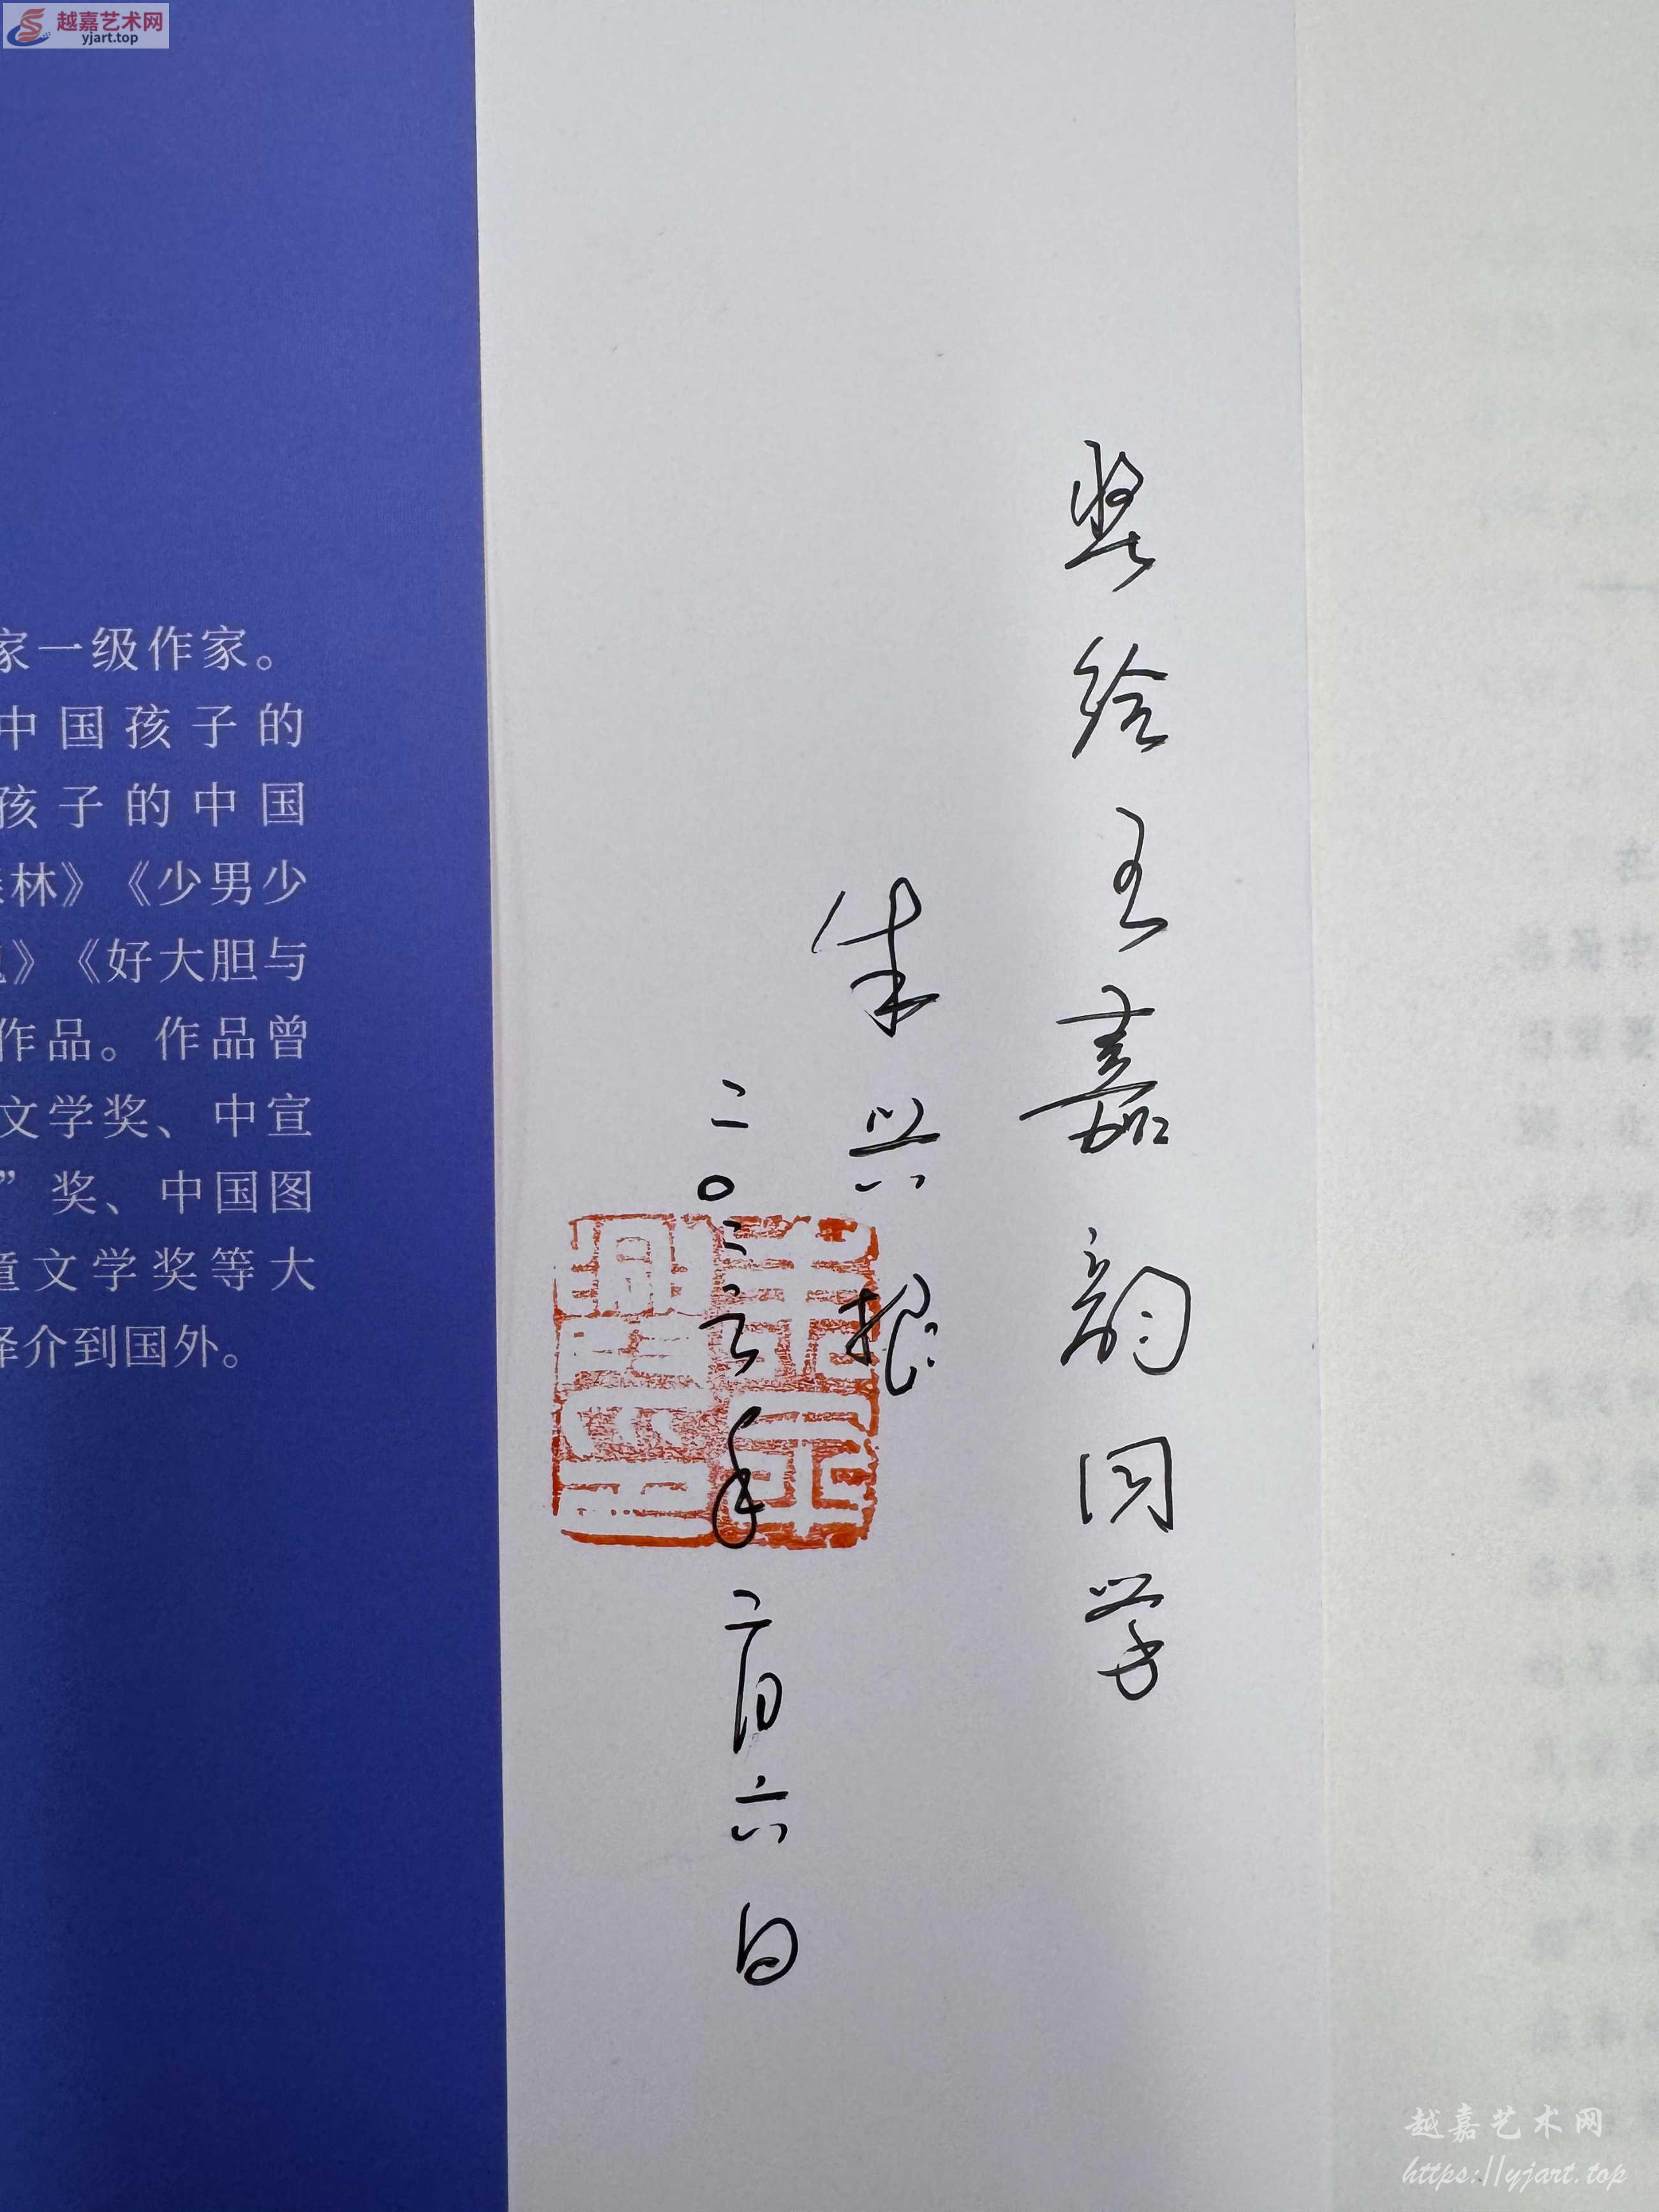 越嘉艺术网
yjart.top
家一级作家。
中国孩子的
孩子的中国
林》《少男少
》《好大胆与
作品。作品曾
文学奖、中宣
”奖、中国图
童文学奖等大
译介到国外。
奖给王嘉韵同学
朱兴根
二〇二三年二月六日
越嘉艺术网
https://yjart.top